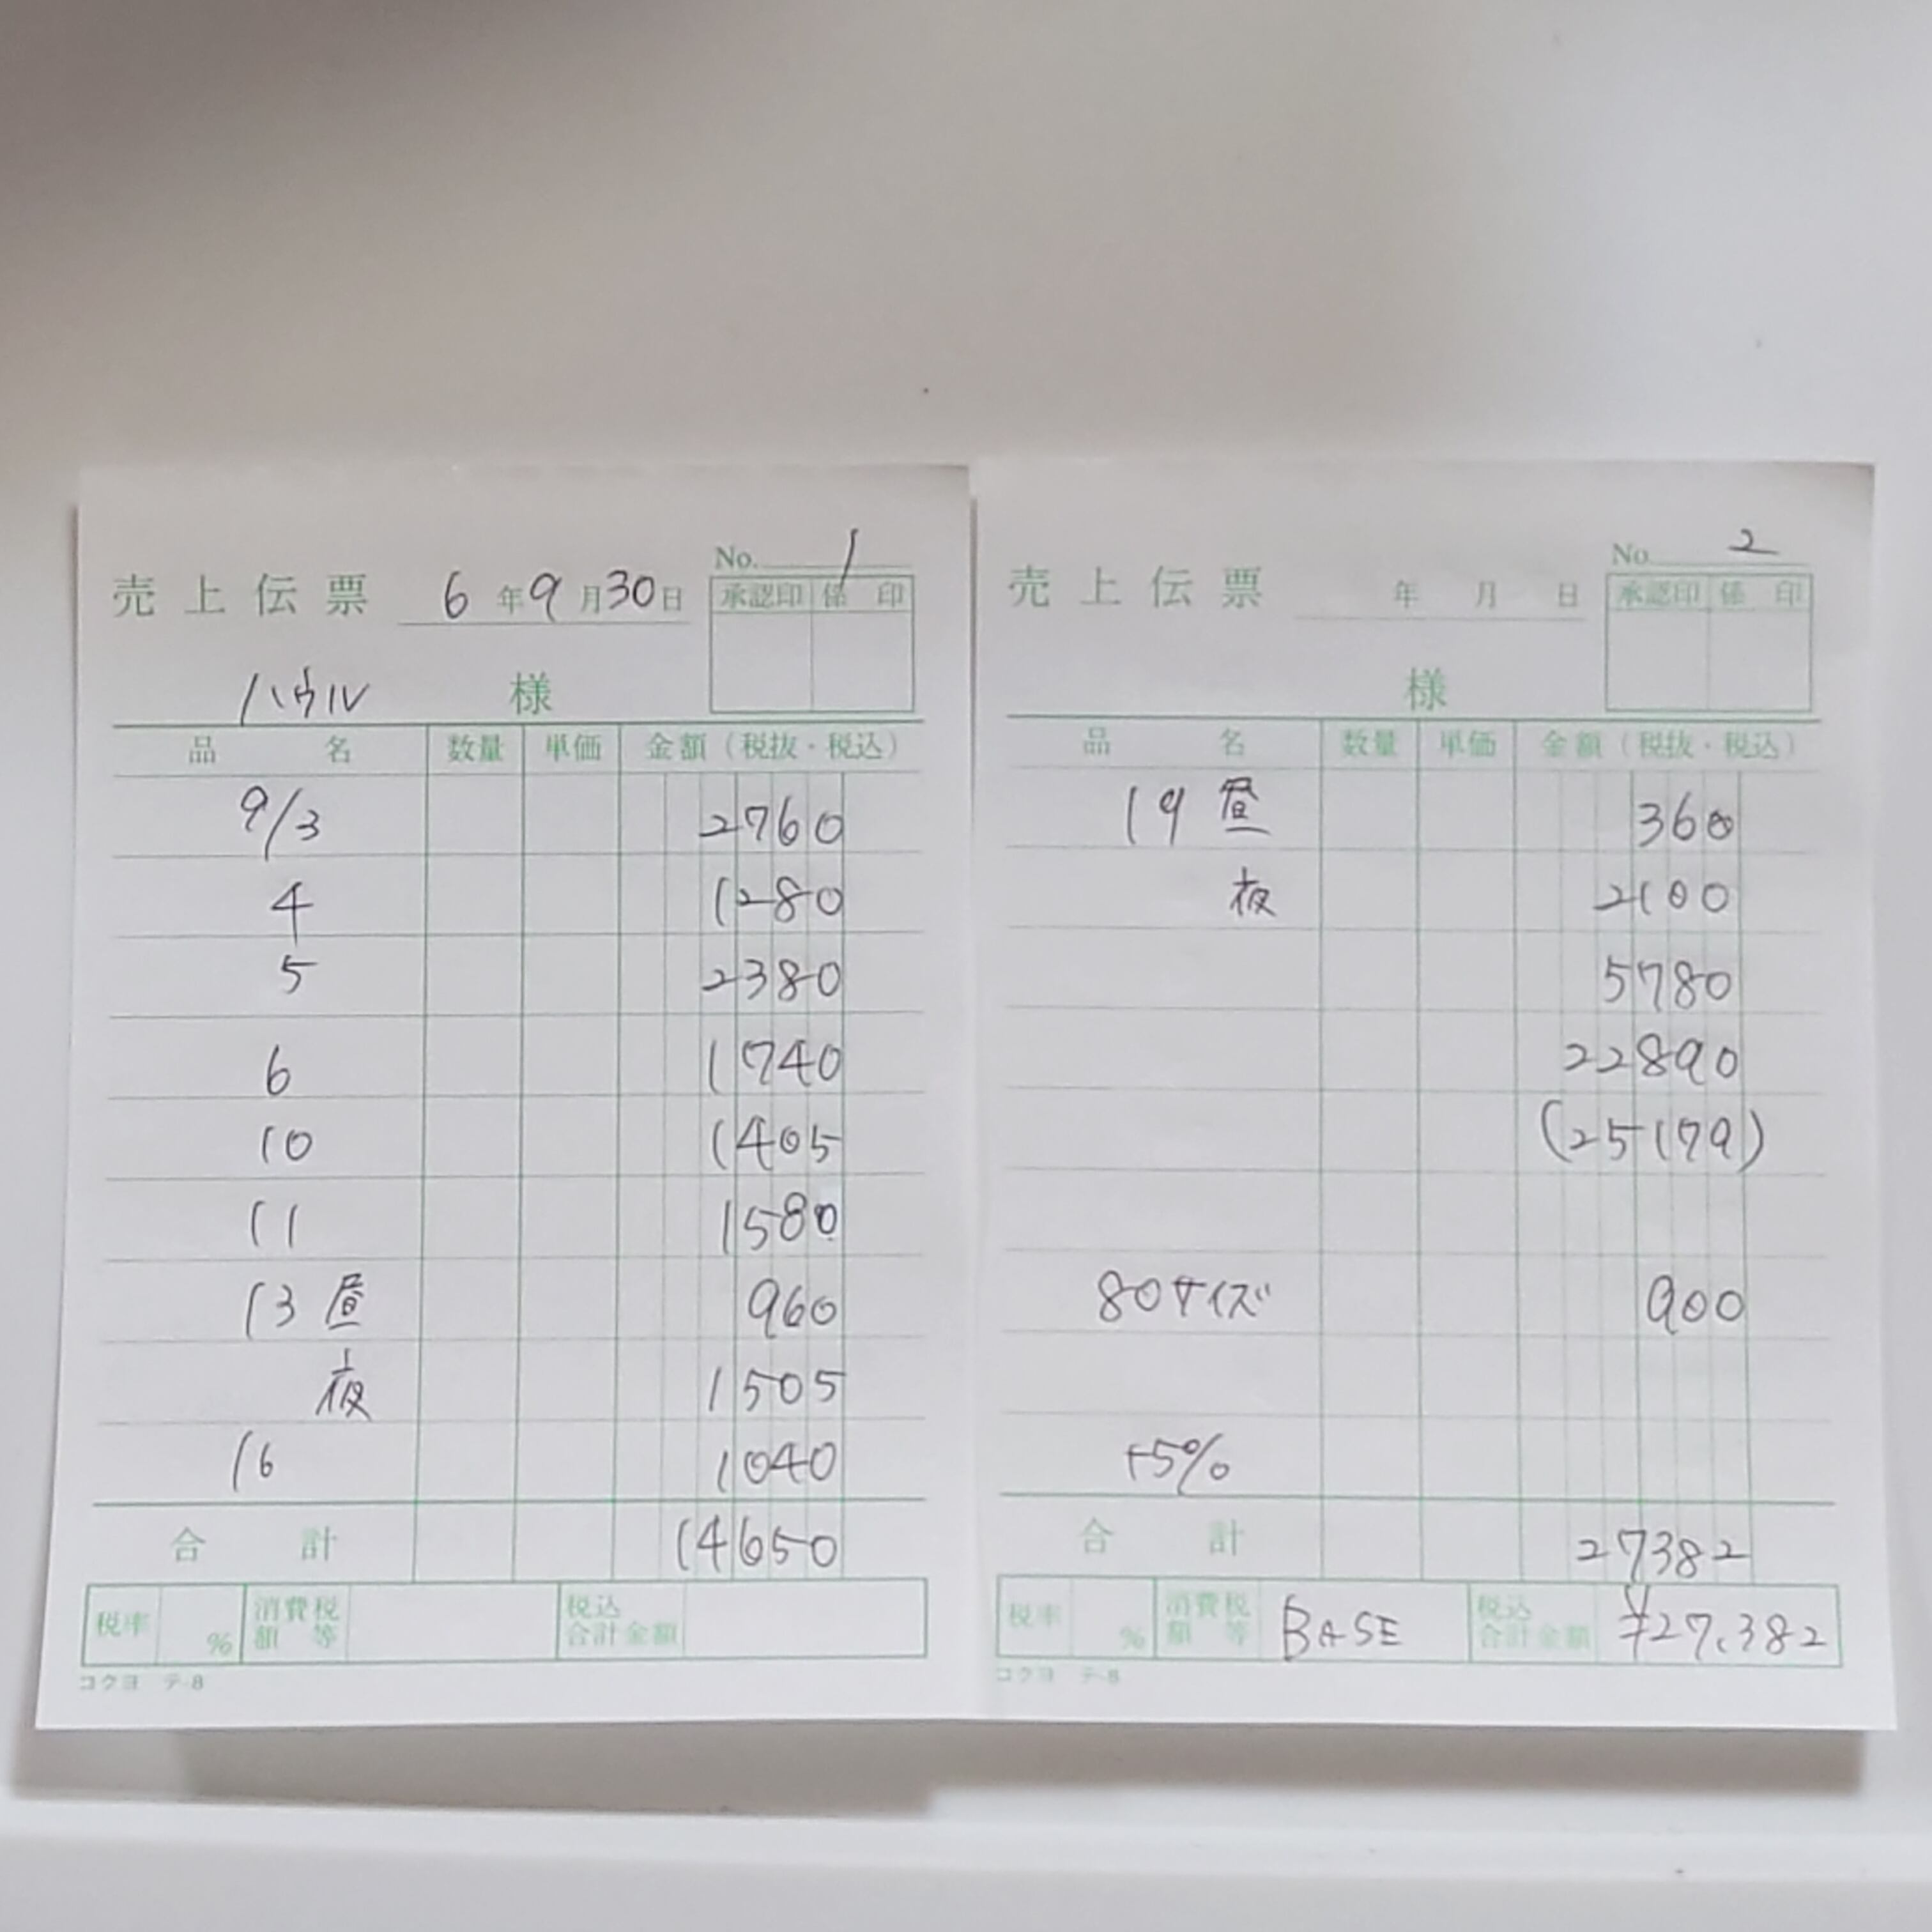 No. 1
売上伝票 6年9月30日
承認印 係印
ハウル 様
品名 数量 単価 金額（税抜・税込）
9/3 2760
4 1280
5 2380
6 1740
10 1405
11 1580
13 昼 960
夜 1505
16 1040
合計 14650
税率 % 消費税額等 税込合計金額
コクヨ テ-8
No. 2
売上伝票 年 月 日
承認印 係印
様
品名 数量 単価 金額（税抜・税込）
19 昼 360
夜 2100
5780
22890
(25179)
80サイズ 900
+5%
合計 27382
税率 % 消費税額等 BASE 税込合計金額 ¥27,382
コクヨ テ-8